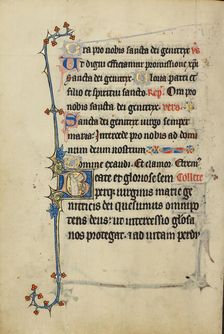 Ora pro nobis sancta dei genitrix vs
Ut digni efficiamur promissione xpi
sancta dei genitrix. Gloria patri et
filio et spiritui sancto. Rep. Ora pro
nobis sancta dei genitrix. vers.
Sancta dei genitrix virgo semper
maria. Intercede pro nobis ad domi
num deum nostrum
Domine exaudi. Et clamor. Oremus
Beate et gloriose sem Collecte
perque virginis marie ge
nitricis dei quesumus omnipo
tens deus. ut intercessio gloriosa
nos protegat. ad vitam perdu